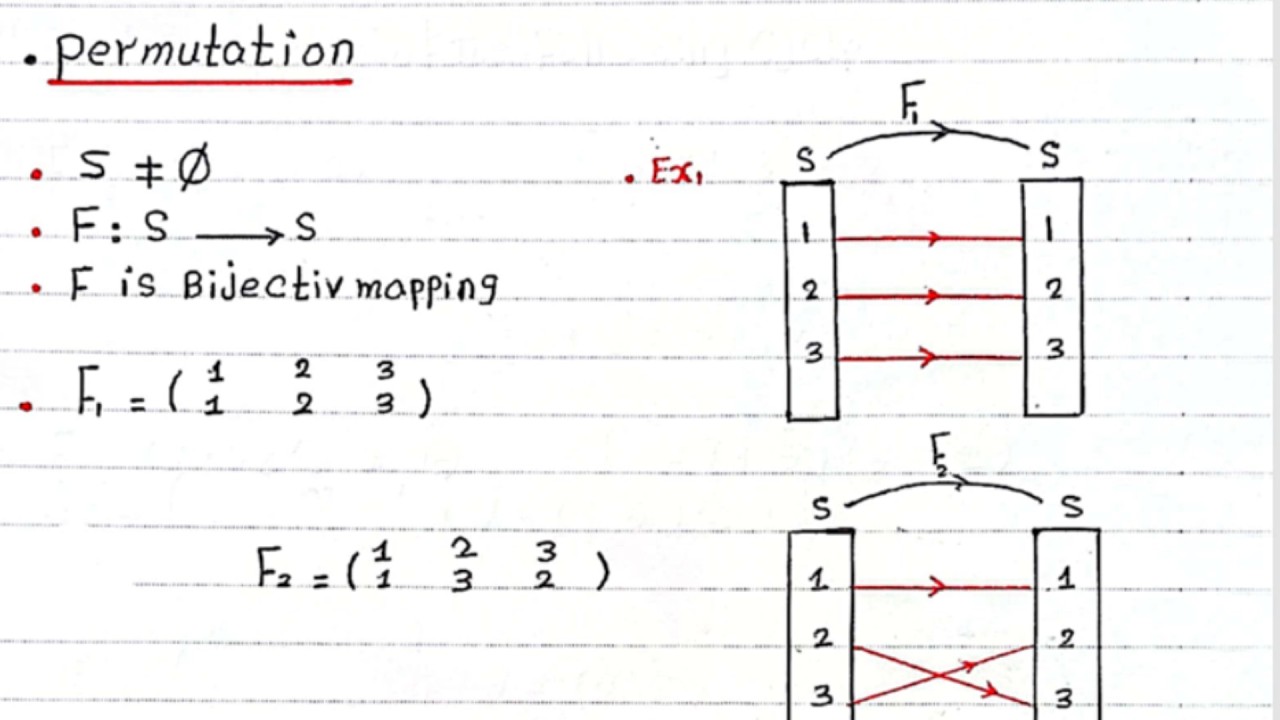 . permutation
• S ≠ ∅
• F : S ⟶ S
• F is Bijectiv mapping
• F₁ = ( 1 2 3
1 2 3 )
F₂ = ( 1 2 3
1 3 2 )
. Ex,
F₁
S S
1 1
2 2
3 3
F₂
S S
1 1
2 2
3 3